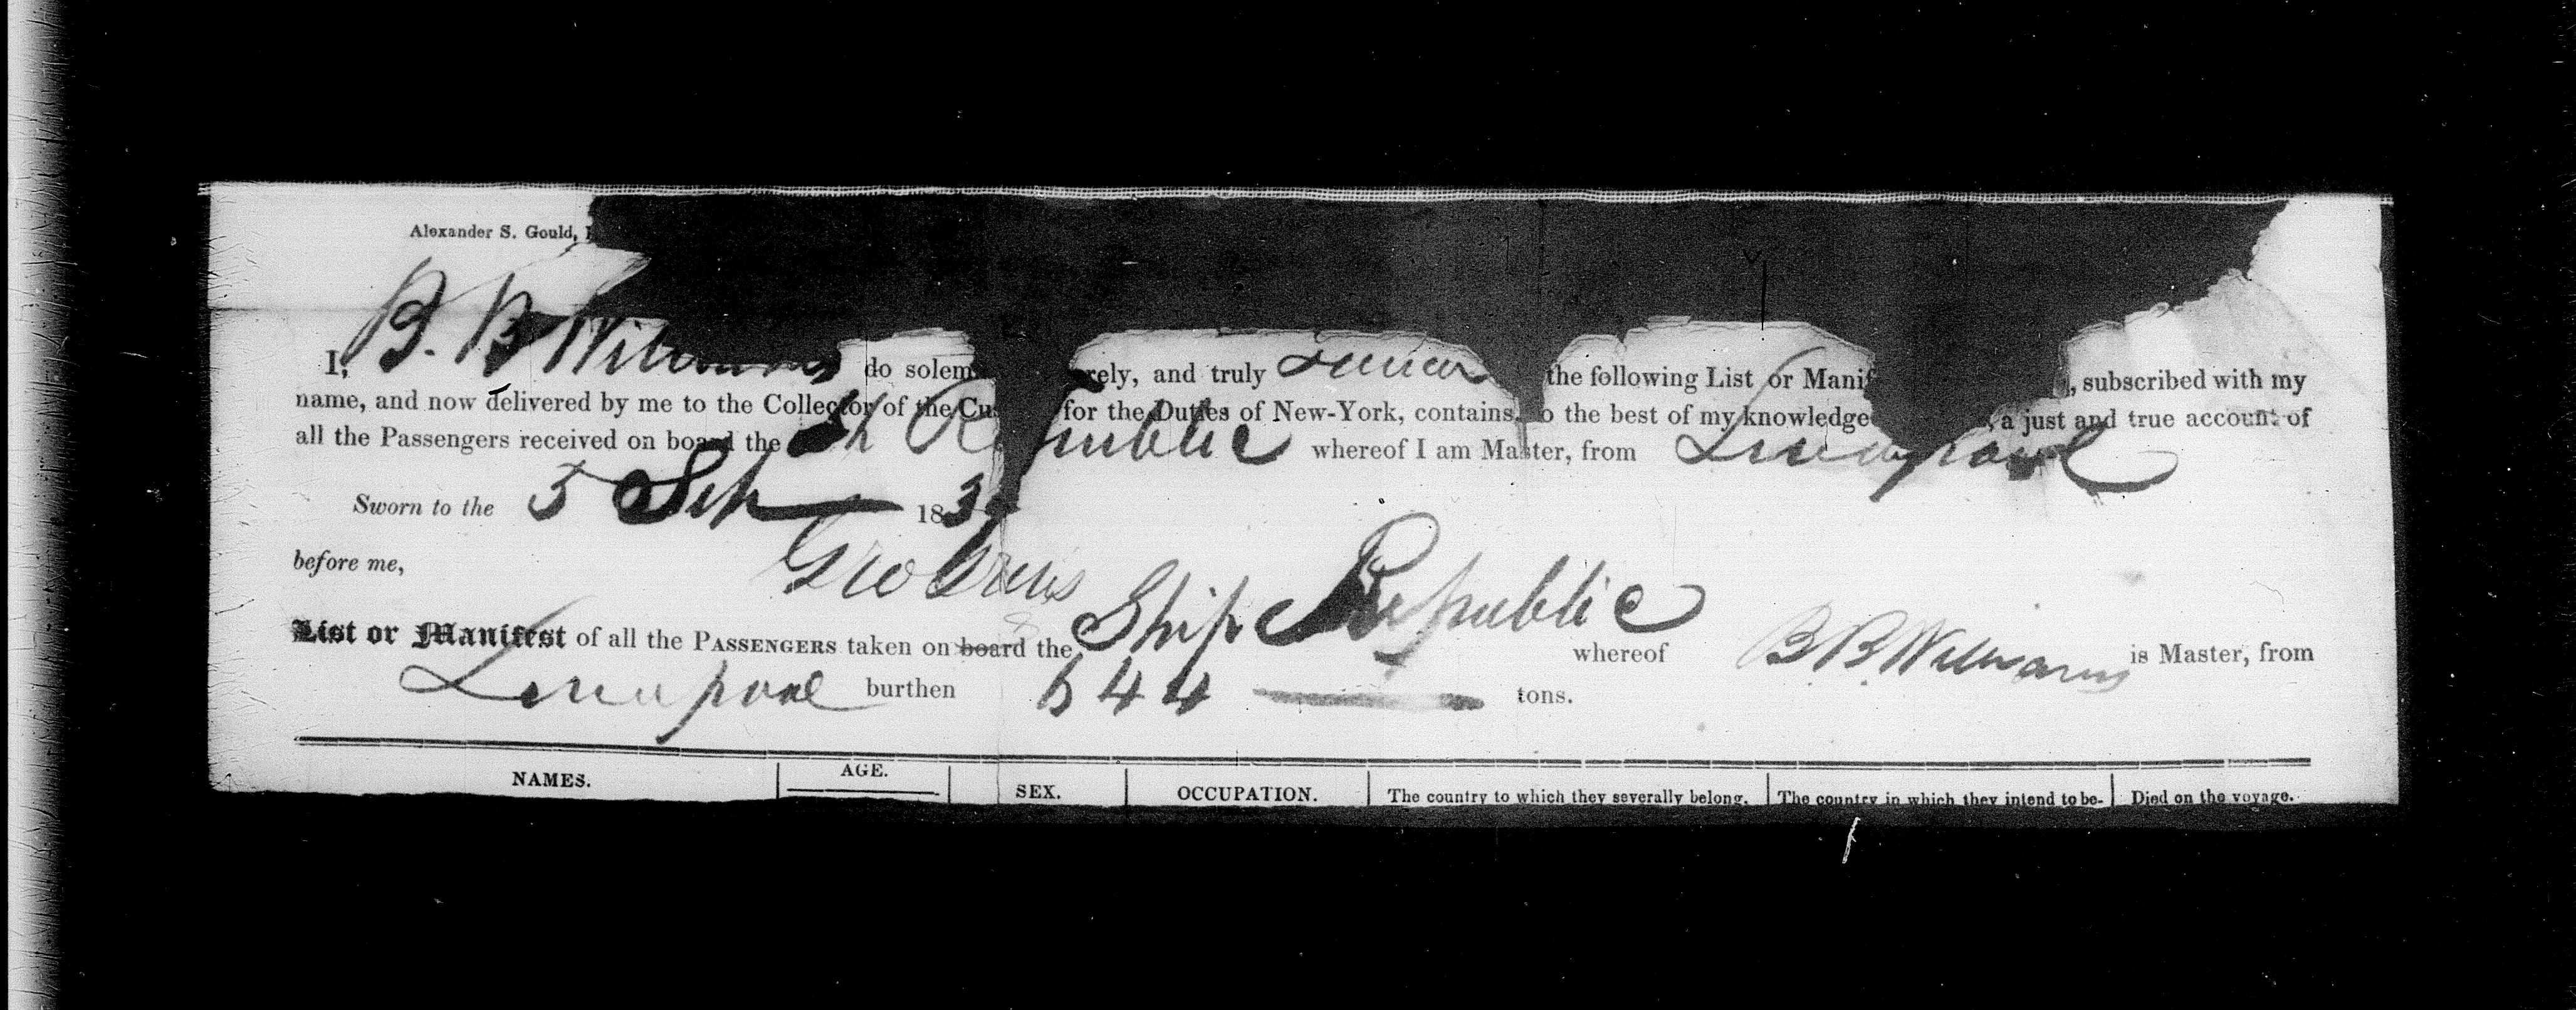 Alexander S. Gould,
I, B. B Williams do solem rely, and truly the following List or Manif , subscribed with my
name, and now delivered by me to the Collector of the Cus for the Duties of New-York, contains, to the best of my knowledge a just and true account of
all the Passengers received on board the Sh Republic whereof I am Master, from Liverpool
Sworn to the 5 Sep 183
before me, Geo
List or Manifest of all the PASSENGERS taken on board the Ship Republic whereof B. B. Williams is Master, from
Liverpool burthen 644 tons.
NAMES. AGE. SEX. OCCUPATION. The country to which they severally belong. The country in which they intend to be- Died on the voyage.